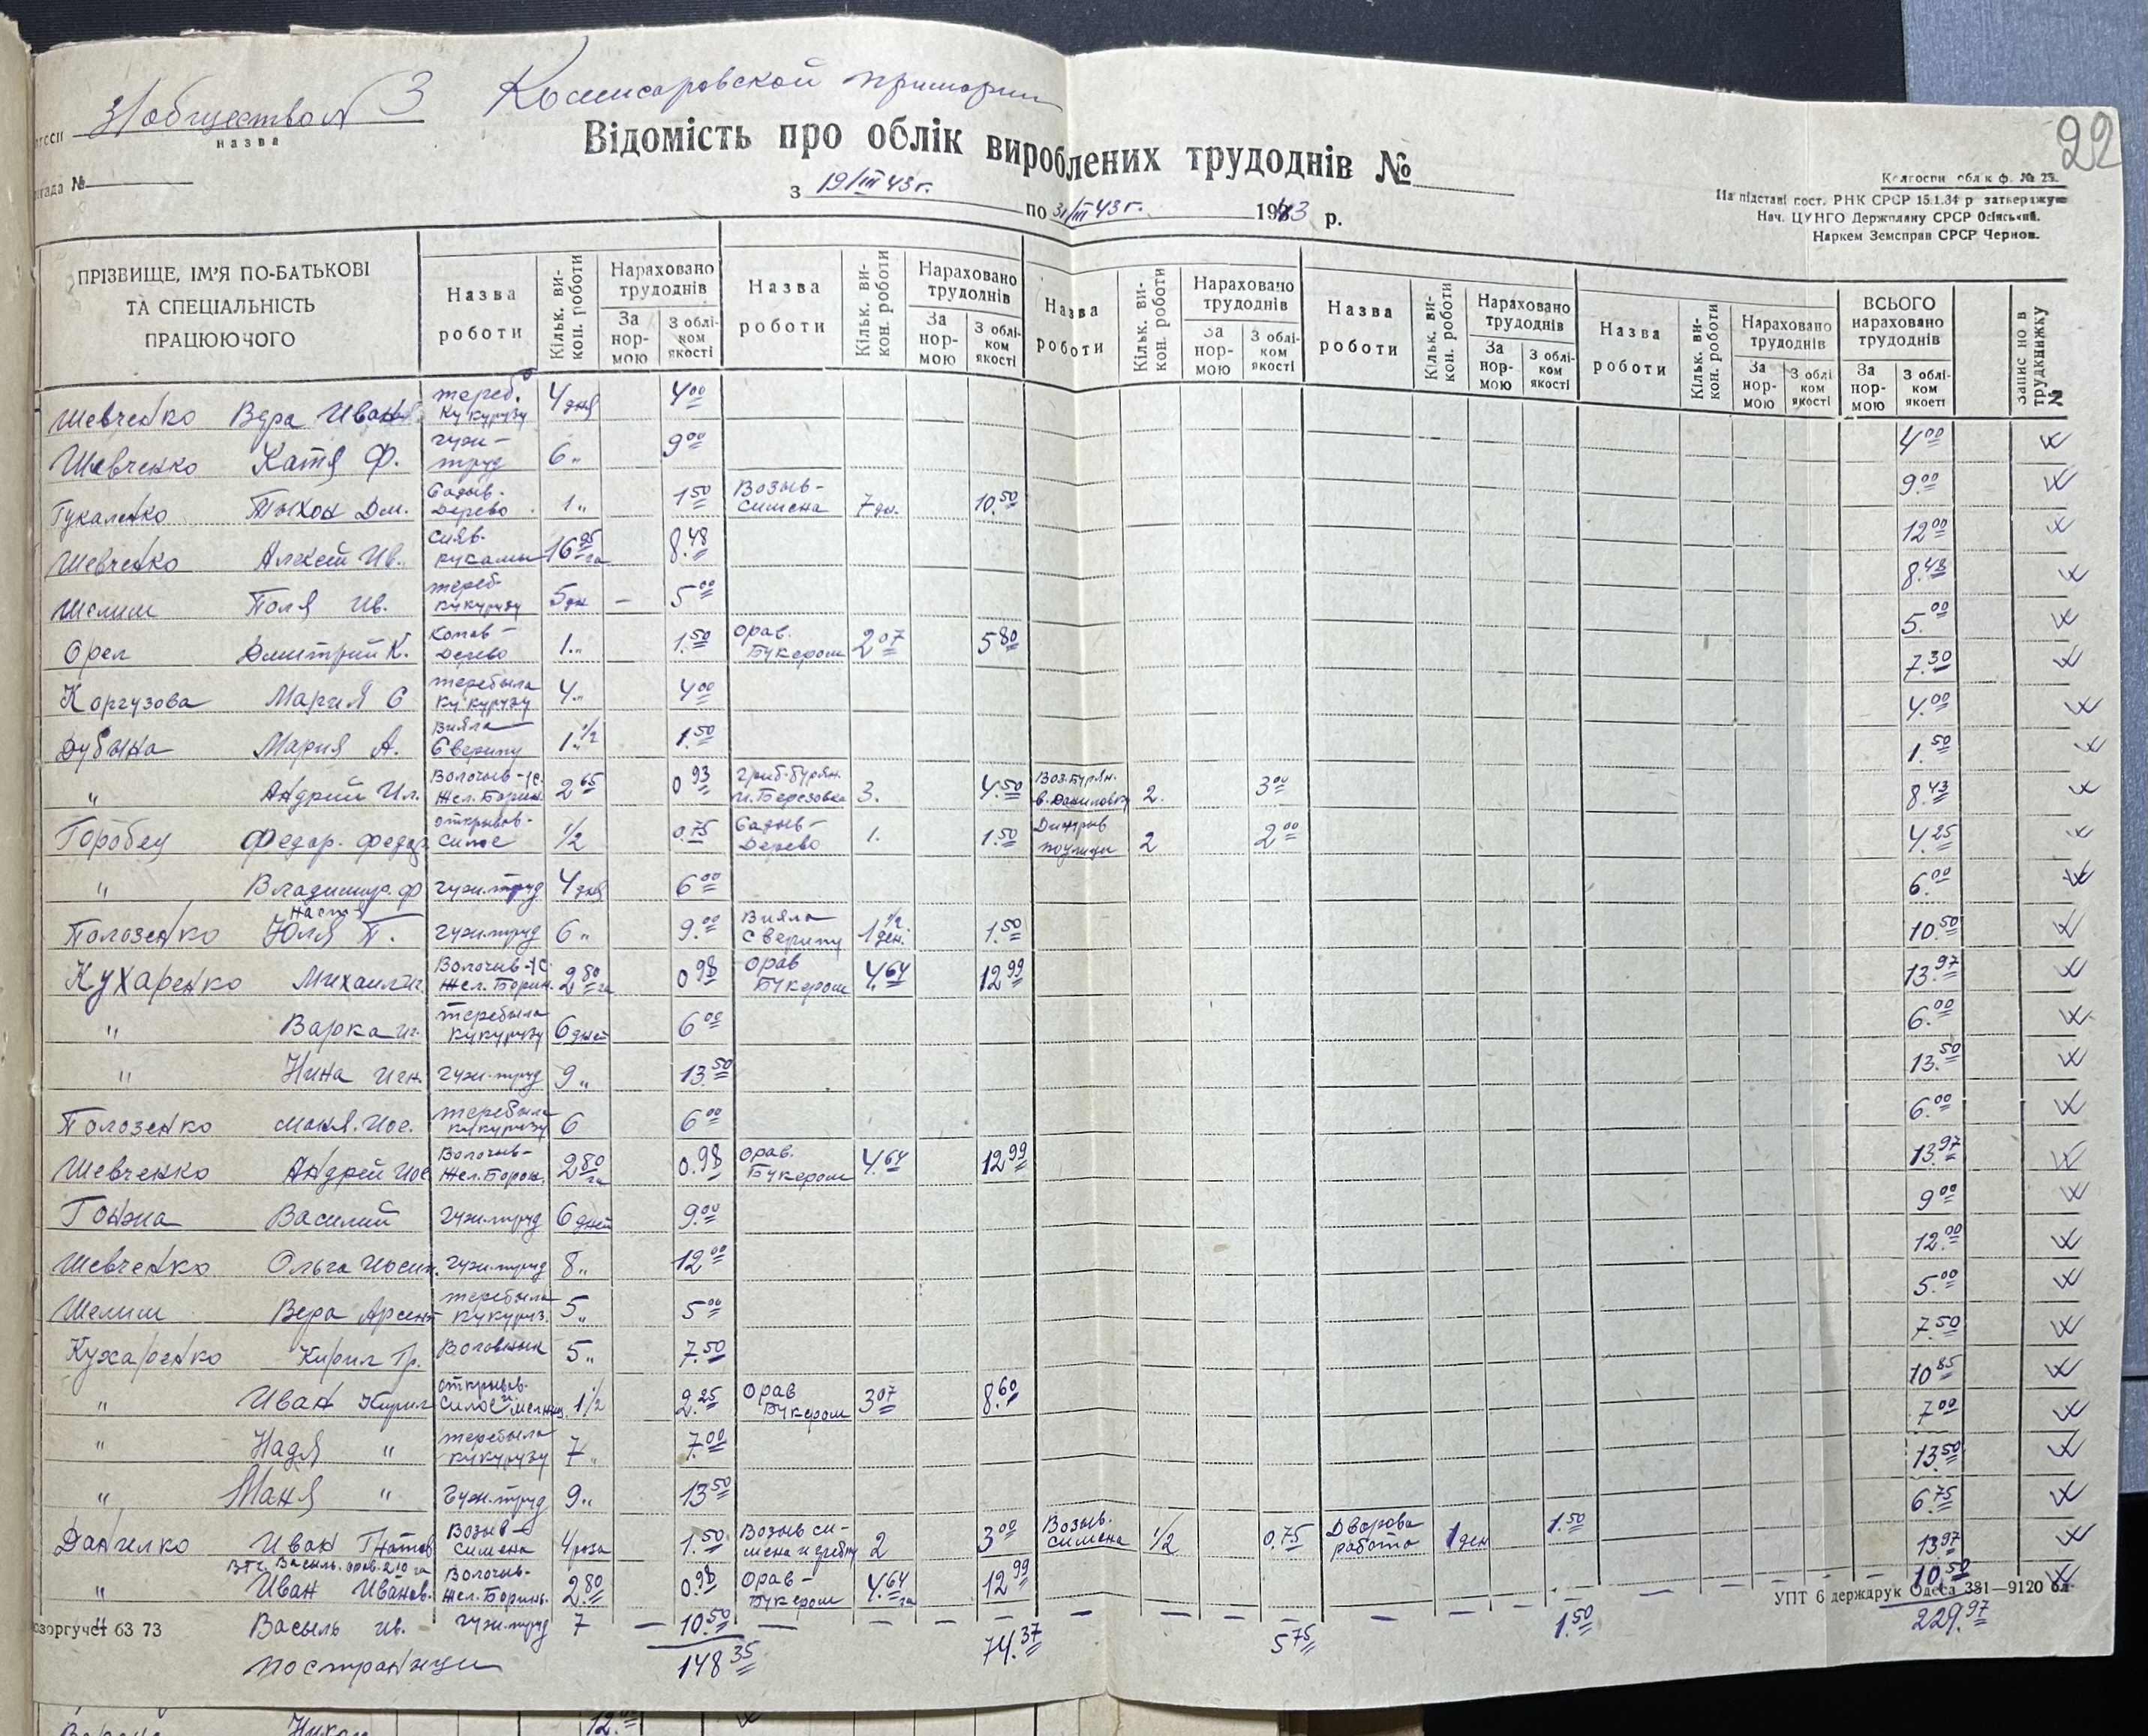 22
З/общество N 3 Комисаровской примарии
назва
Відомість про облік вироблених трудоднів №
№
з 19/III 43 г. по 31/III 43 г. 1943 р.
Колгоспн облік ф. № 25.
На підставі пост. РНК СРСР 15.1.34 р затверджую
Нач. ЦУНГО Держплану СРСР Осінський.
Наркем Земсправ СРСР Чернов.
ПРІЗВИЩЕ, ІМ'Я ПО-БАТЬКОВІ ТА СПЕЦІАЛЬНІСТЬ ПРАЦЮЮЧОГО
Назва роботи Кільк. ви-кон. роботи Нараховано трудоднів За нор-мою З облі-ком якості
Назва роботи Кільк. ви-кон. роботи Нараховано трудоднів За нор-мою З облі-ком якості
Назва роботи Кільк. ви-кон. роботи Нараховано трудоднів За нор-мою З облі-ком якості
Назва роботи Кільк. ви-кон. роботи Нараховано трудоднів За нор-мою З облі-ком якості
Назва роботи Кільк. ви-кон. роботи Нараховано трудоднів За нор-мою З облі ком якості
ВСЬОГО нараховано трудоднів За нор-мою З облі-ком якості
Запис но в трудкнижку №
Шевченко Вера Иван. тереб. кукурузу 4 дня 4.00 4.00
Шевченко Катя Ф. гуж-труд 6 " 9.00 9.00
Гукаленко Тыхон Дм. Садыв. дерево 1 " 1.50 Возыв-симена 7 дн. 10.50 12.00
Шевченко Алексей Ив. сияв. рукамы 16.95 га 8.48 8.48
Шелиш Поля Ив. тереб. кукурузу 5 дн - 5.00 5.00
Орел Дмитрий К. Копав-дерево 1 " 1.50 Орав. Букером 2.07 5.80 7.30
Коргузова Мария С теребыла кукурузу 4 " 4.00 4.00
Дубына Мария А. Вияла Сверипу 1 1/2 " 1.50 1.50
" Андрий Ил. Волочыв-1с. Жел. Борин. 2.65 0.93 Березовка 3. 4.50 Воз. Бурян. в. Даниловку 2. 3.00 8.43
Горобец Федор. Федор. открывов-силос 1/2 0.75 Садыв-Дерево 1. 1.50 2 2.00 4.25
" Владимир. Ф гуж. труд 4 дня 6.00 6.00
Полозенко Настя Юля П. гуж. труд 6 " 9.00 Вияла Сверипу 1 1/2 ден. 1.50 10.50
Кухаренко Михаил Иг. Волочыв-1с. Жел. Борин. 2.80 га 0.98 Орав Букером 4.64 12.99 13.97
" Варка Иг. теребыла кукурузу 6 дней 6.00 6.00
" Нина Игн. гуж. труд 9 " 13.50 13.50
Полозенко Маня. Иос. теребыла кукурузу 6 6.00 6.00
Шевченко Андрей Иос Волочыв-Жел. Борон. 2.80 га 0.98 Орав. Букером 4.64 12.99 13.97
Гонжа Василий гуж. труд 6 дней 9.00 9.00
Шевченко Ольга Иосип. гуж. труд 8 " 12.00 12.00
Шелиш Вера Арсент теребыла кукуруз. 5 " 5.00 5.00
Кухаренко Кирил Гр. Воловнык 5 " 7.50 7.50
" Иван Кирил открывов. силос 1 1/2 2.25 Орав Букером 3.07 8.60 10.85
" Надя " теребыла кукурузу 7 " 7.00 7.00
" Маня " гуж. труд 9 " 13.50 13.50
Данилко Иван Гнатов Возыв-симена 4 роза 1.50 Возыв си-мена 2 3.00 Возыв. симена 1/2 0.75 Дворова работа 1 ден 1.50 6.75
" Иван Иванов. Волочыв-Жел. Боринь. 2.80 0.98 Орав-Букером 4.64 га 12.99 13.97
" Васыль Ив. гуж. труд 7 - 10.50 10.50
по странице 148.35 74.37 5.75 1.50 229.97
63 73
УПТ 6 держдрук Одеса 381—9120 бл.
12.00